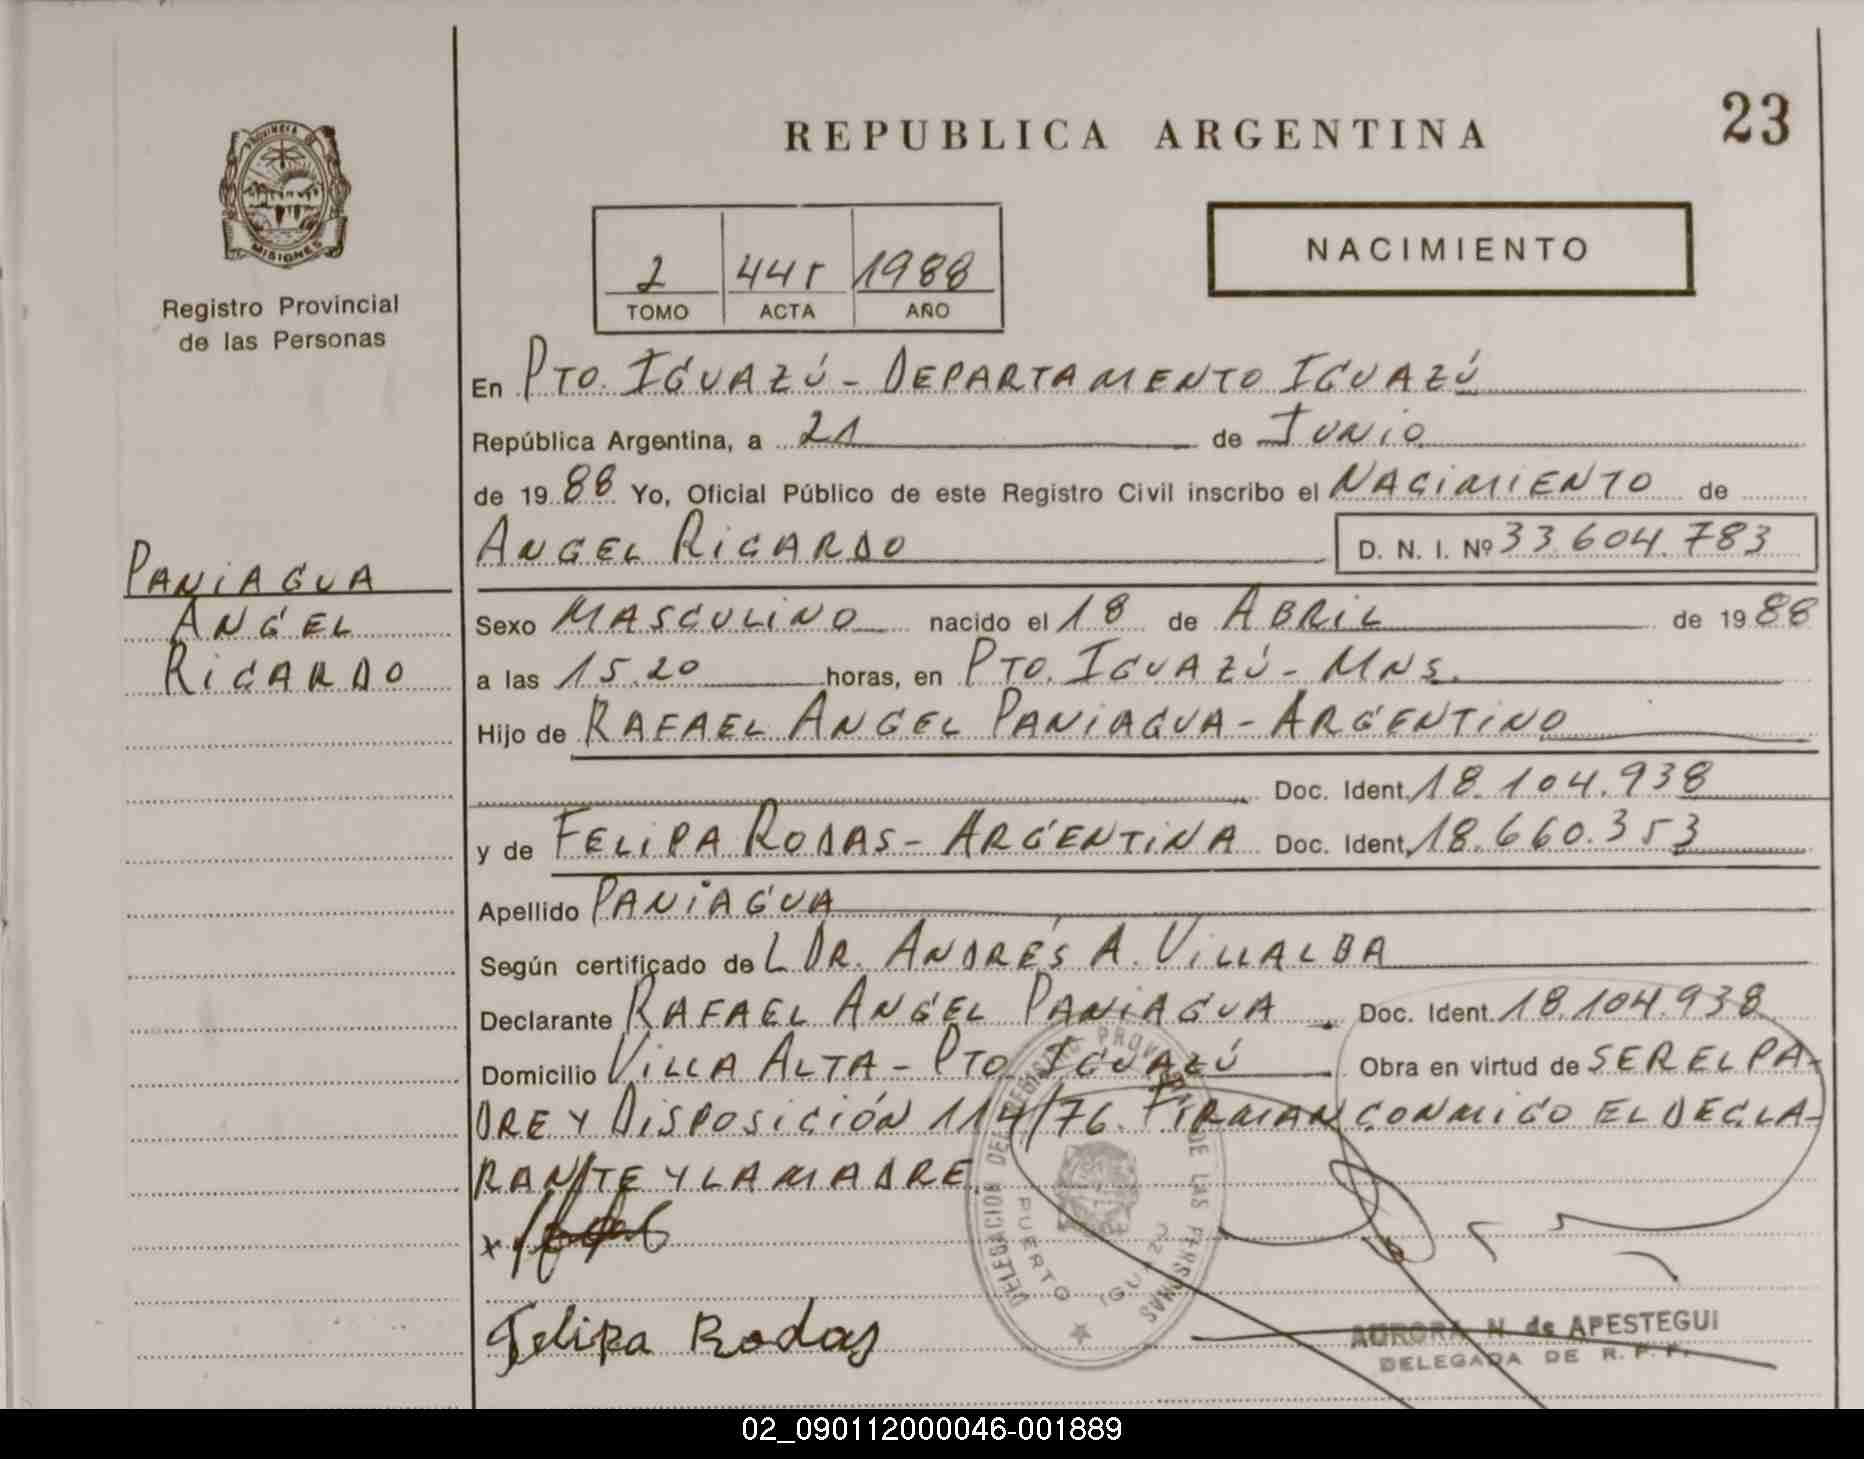 REPUBLICA ARGENTINA
23
PROVINCIA DE
MISIONES
Registro Provincial
de las Personas
2 445 1988
TOMO ACTA AÑO
NACIMIENTO
En PTO. IGUAZÚ - DEPARTAMENTO IGUAZÚ
República Argentina, a 21 de JUNIO
de 1988 Yo, Oficial Público de este Registro Civil inscribo el NACIMIENTO de
ANGEL RICARDO D. N. I. Nº 33.604.783
PANIAGUA
ANGEL
RICARDO
Sexo MASCULINO nacido el 18 de ABRIL de 1988
a las 15.20 horas, en PTO. IGUAZÚ - MNS.
Hijo de RAFAEL ANGEL PANIAGUA - ARGENTINO
Doc. Ident. 18.104.938
y de FELIPA RODAS - ARGENTINA Doc. Ident. 18.660.353
Apellido PANIAGUA
Según certificado de L DR. ANDRÉS A. VILLALBA
Declarante RAFAEL ANGEL PANIAGUA. Doc. Ident. 18.104.938
Domicilio VILLA ALTA - PTO IGUAZÚ Obra en virtud de SER EL PA-
DRE Y DISPOSICIÓN 114/76. FIRMAN CONMIGO EL DECLA-
RANTE Y LA MADRE.
x
Felipa Rodas
DELEGACION DEL REGISTRO PROVINCIAL DE LAS PERSONAS
PUERTO IGUAZU
AURORA N. de APESTEGUI
DELEGADA DE R. P. P.
02_090112000046-001889